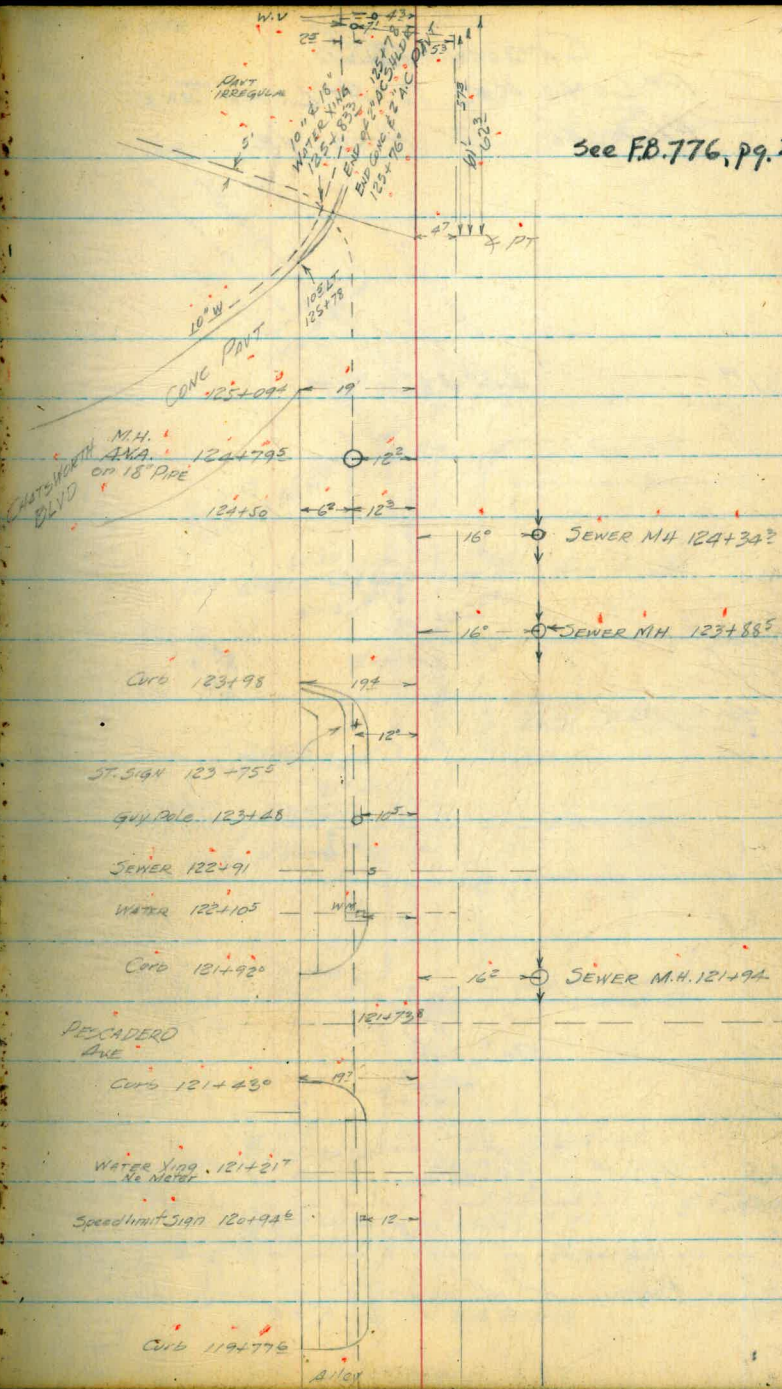 W.V
4³
7¹
2⁵
5³
57⁸
61¹
62³
PAVT
IRREGULAR
5'
10" & 18"
WATER XING
125+83³
END OF 2" AC SHLDR
125+78
END CONC. & 2" A.C. PAVT
125+76⁰
See F.B.776, pg.
4⁷
PT
10⁵ LT.
125+78
10" W
CONC PAVT
125+09⁴ 19
CHATSWORTH
BLVD
M.H.
A.V.A. 124+79⁵ 12²
on 18" PIPE
124+50 6² 12³
16⁰ SEWER MH 124+34³
16⁰ SEWER MH. 123+88⁵
Curb 123+98 19⁴
12⁰
ST. SIGN 123+75⁵
Guy Pole 123+48 10⁵
SEWER 122+91 S
WATER 122+10⁵ W.M.
Curb 121+92⁰
16² SEWER M.H. 121+94
121+73⁸
PESCADERO
AVE
Curb 121+43⁰ 19²
WATER Xing 121+21⁷
No Meter
Speed limit Sign 120+94⁶ 12
Curb 119+77⁶
Alley